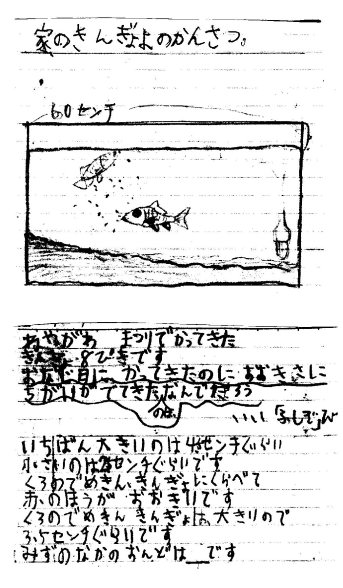 家のきんぎょのかんさつ。
60センチ
まつりでかってきた
きんぎょ 8ぴきです
おなじ日に かってきたのに おおきさに
ちがいが でてきた なんでだろう
いい「ふしぎ」
いちばん大きいのは センチぐらい
小さいのは センチぐらいです
くろのでめきんきんぎょにくらべて
赤のほうが おおきいです
くろのでめきんきんぎょは 大きいので
3.5センチぐらいです
みずのなかのおんどは__です